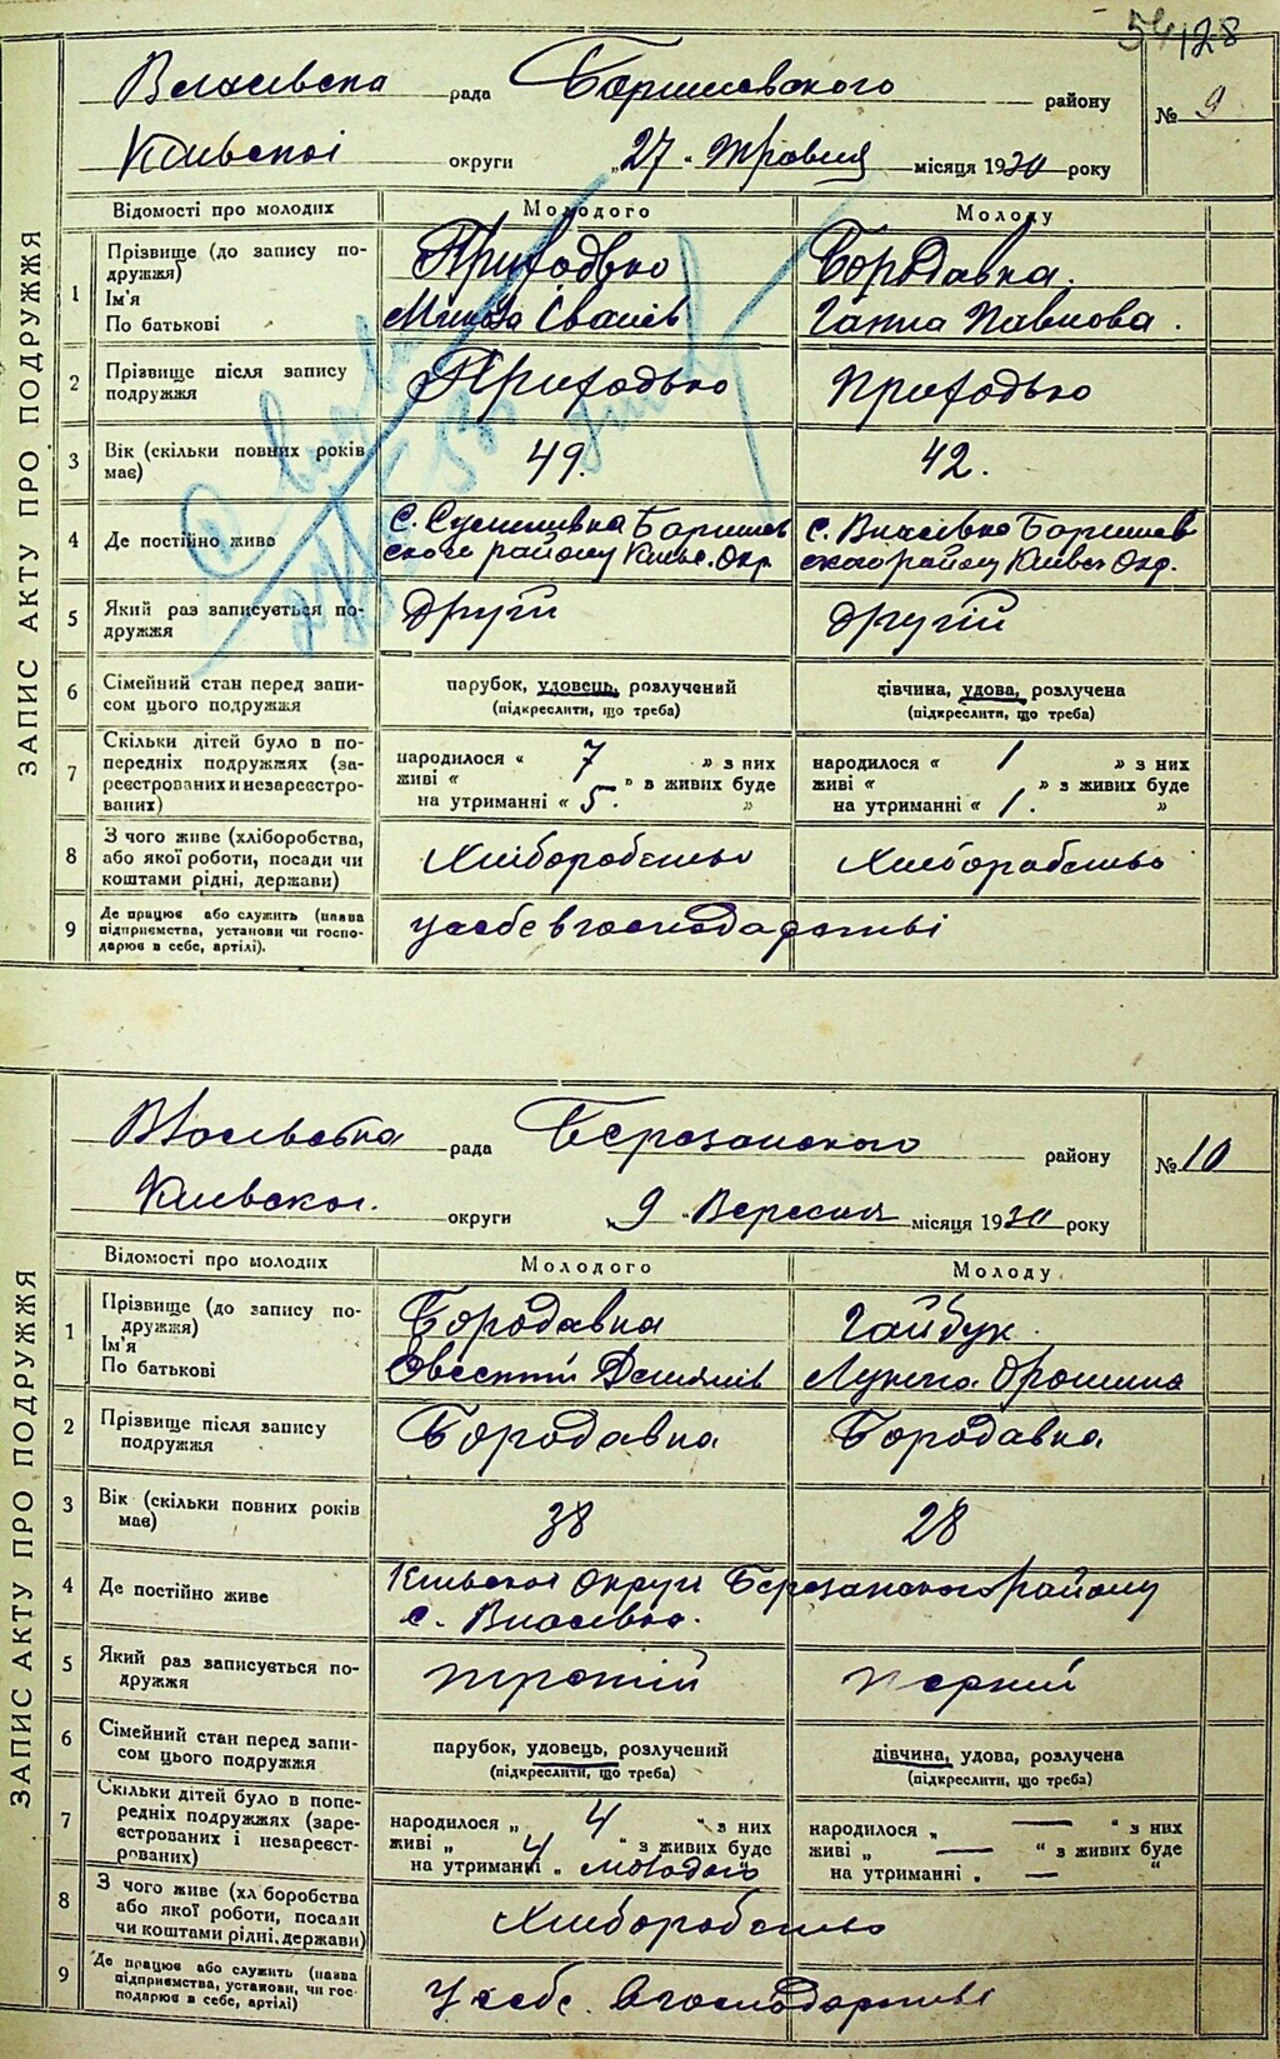 54 128
Власівска рада Баришевского району № 9
Київскої округи „27“ Травня місяця 1930 року
ЗАПИС АКТУ ПРО ПОДРУЖЖЯ
Відомості про молодих Молодого Молоду
1 Прізвище (до запису по-
дружжя) Приходько Бородавка.
Ім'я
По батькові Микола Іванів Ганна Павлова.
2 Прізвище після запису
подружжя Приходько Приходько
3 Вік (скільки повних років
має) 49. 42.
4 Де постійно живе с. Сулимівка Баришев с. Власівка Баришев
ского району Київс. Окр. ского району Київск Окр.
5 Який раз записується по-
дружжя другій другій
6 Сімейний стан перед запи-
сом цього подружжя
парубок, удовець, розлучений дівчина, удова, розлучена
(підкреслити, що треба) (підкреслити, що треба)
7 Скільки дітей було в по-
передніх подружжях (за-
реєстрованих и незареєстро-
ваних)
народилося « 7 » з них народилося « 1 » з них
живі « » в живих буде живі « » з живих буде
на утриманні « 5. » на утриманні « 1. »
8 З чого живе (хліборобства,
або якої роботи, посади чи
коштами рідні, держави) Хліборобство Хліборобство
9 Де працює або служить (назва
підприємства, установи чи госпо-
дарює в себе, артілі). у себе в господарстві
Власівска рада Березанского району № 10
Київскоі. округи „9“ Вересня місяця 1930 року
ЗАПИС АКТУ ПРО ПОДРУЖЖЯ
Відомості про молодих Молодого Молоду
1 Прізвище (до запису по-
дружжя) Бородавка Гайбук.
Ім'я
По батькові Овсентій Демянів Лукина
2 Прізвище після запису
подружжя Бородавка Бородавка
3 Вік (скільки повних років
має) 38 28
4 Де постійно живе Київскоі Округи Березанского району
с. Власівка.
5 Який раз записується по-
дружжя третій перший
6 Сімейний стан перед запи-
сом цього подружжя
парубок, удовець, розлучений дівчина, удова, розлучена
(підкреслити, що треба) (підкреслити, що треба)
7 Скільки дітей було в попе-
редніх подружжях (заре-
єстрованих і незареєст-
рованих)
народилося „ 4 “ з них народилося „ — “ з них
живі „ 4 “ з живих буде живі „ — “ з живих буде
на утриманні „ молодого “ на утриманні „ — “
8 З чого живе (хл боробства
або якої роботи, посади
чи коштами рідні, держави) Хліборобство
9 Де працює або служить (назва
підприємства, установи, чи гос-
подарює в себе, артілі) У себе. в господарстві